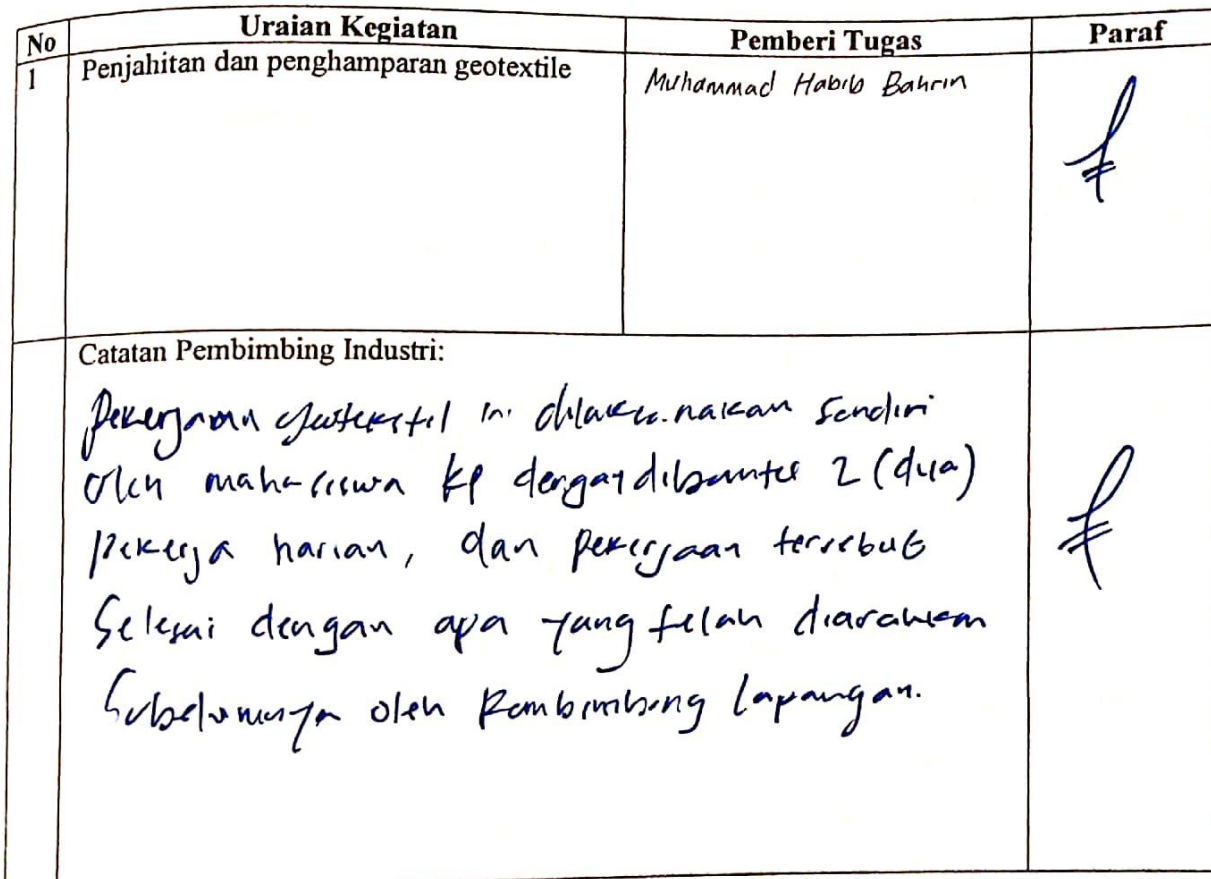 No Uraian Kegiatan Pemberi Tugas Paraf
1 Penjahitan dan penghamparan geotextile Muhammad Habib Bahrin
Catatan Pembimbing Industri:
Pekerjaan geotekstil ini dilaksanakan sendiri
oleh mahasiswa KP dengan dibantu 2 (dua)
pekerja harian, dan pekerjaan tersebut
Selesai dengan apa yang telah diarahkan
Sebelumnya oleh Pembimbing lapangan.